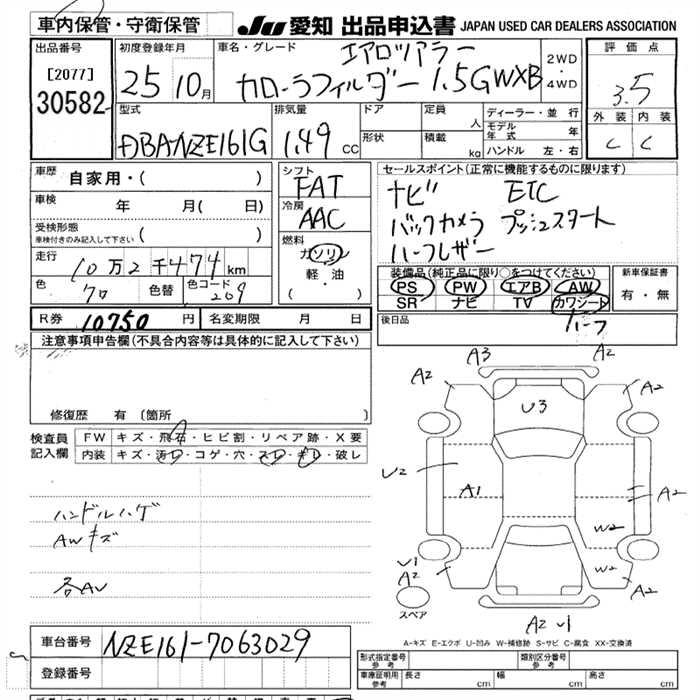 車内保管・守衛保管
JU 愛知 出品申込書 JAPAN USED CAR DEALERS ASSOCIATION
出品番号
[2077]
30582
初度登録年月
25 10月
車名・グレード
エアロツアラー
カローラフィルダー 1.5G WXB
2WD
・
4WD
評価点
3.5
外装 内装
C C
型式
DBANZE161G
排気量
1.49 cc
ドア
形状
定員 人
積載 kg
ディーラー・並行
モデル年式 年
ハンドル 左・右
車歴 自家用・( )
車検 年 月( 日)
受検形態
車検付きのみ記入して下さい ( )
走行 10万2千474km
色 クロ 色替 色コード 209
シフト
FAT
冷房
AAC
燃料
ガソリン
軽・油
( )
セールスポイント(正常に機能するものに限ります)
ナビ ETC
バックカメラ プッシュスタート
ハーフレザー
装備品(純正品に限り○をつけてください)
PS PW エアB AW
SR ナビ TV カワシート
ハーフ
新車保証書
有・無
R券 10750円 名変期限 月 日
後日品
注意事項申告欄(不具合内容等は具体的に記入して下さい)
修復歴 有〔箇所
検査員
記入欄
FW キズ・飛石・ヒビ割・リペア跡・X要
内装 キズ・汚レ・コゲ・穴・スレ・キレ・破レ
ハンドルハゲ
AWキズ
各AU
A3
A2
A2
A2
A2
U3
U2
A1
A2
W2
W2
U1
A2
A2
スペア
A2 U1
A-キズ E-エクボ U-凹み W-補修跡 S-サビ C-腐食 XX-交換済
車台番号 NZE161-7063029
登録番号
形式指定番号
参考
類別区分番号
参考
車庫証明用
参考
長さ cm 幅 cm 高さ cm